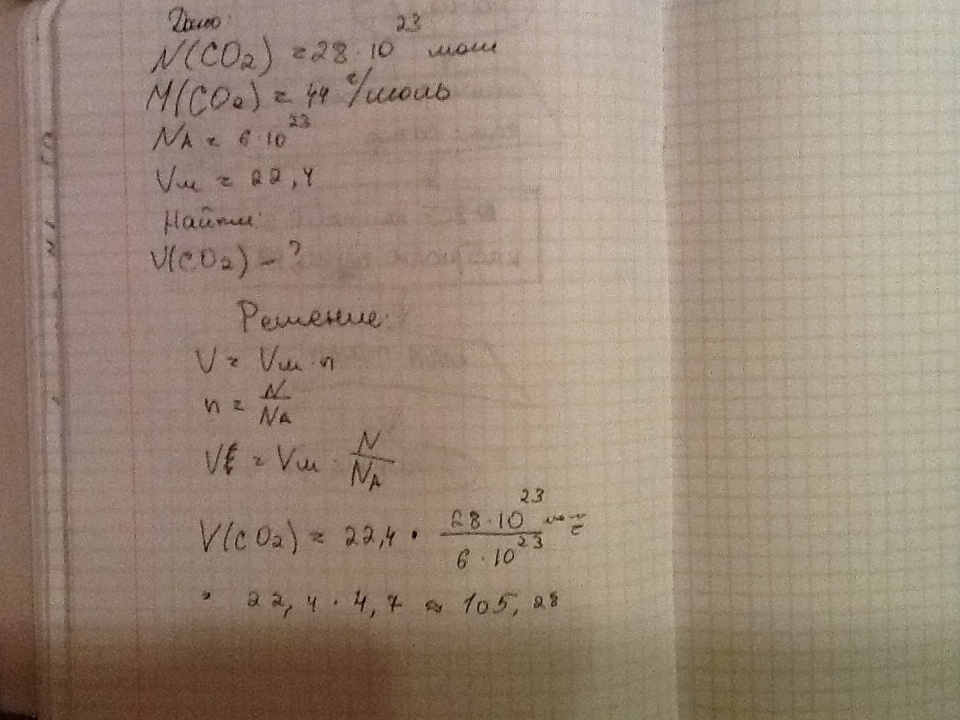 Дано:
N(CO₂) = 28·10²³ мол
M(CO₂) = 44 г/моль
Nᴀ = 6·10²³
Vм = 22,4
Найти:
V(CO₂) – ?
Решение:
V = Vм · n
n = N/Nᴀ
V = Vм · N/Nᴀ
V(CO₂) = 22,4 · 28·10²³/6·10²³ =
= 22,4 · 4,7 ≈ 105,28